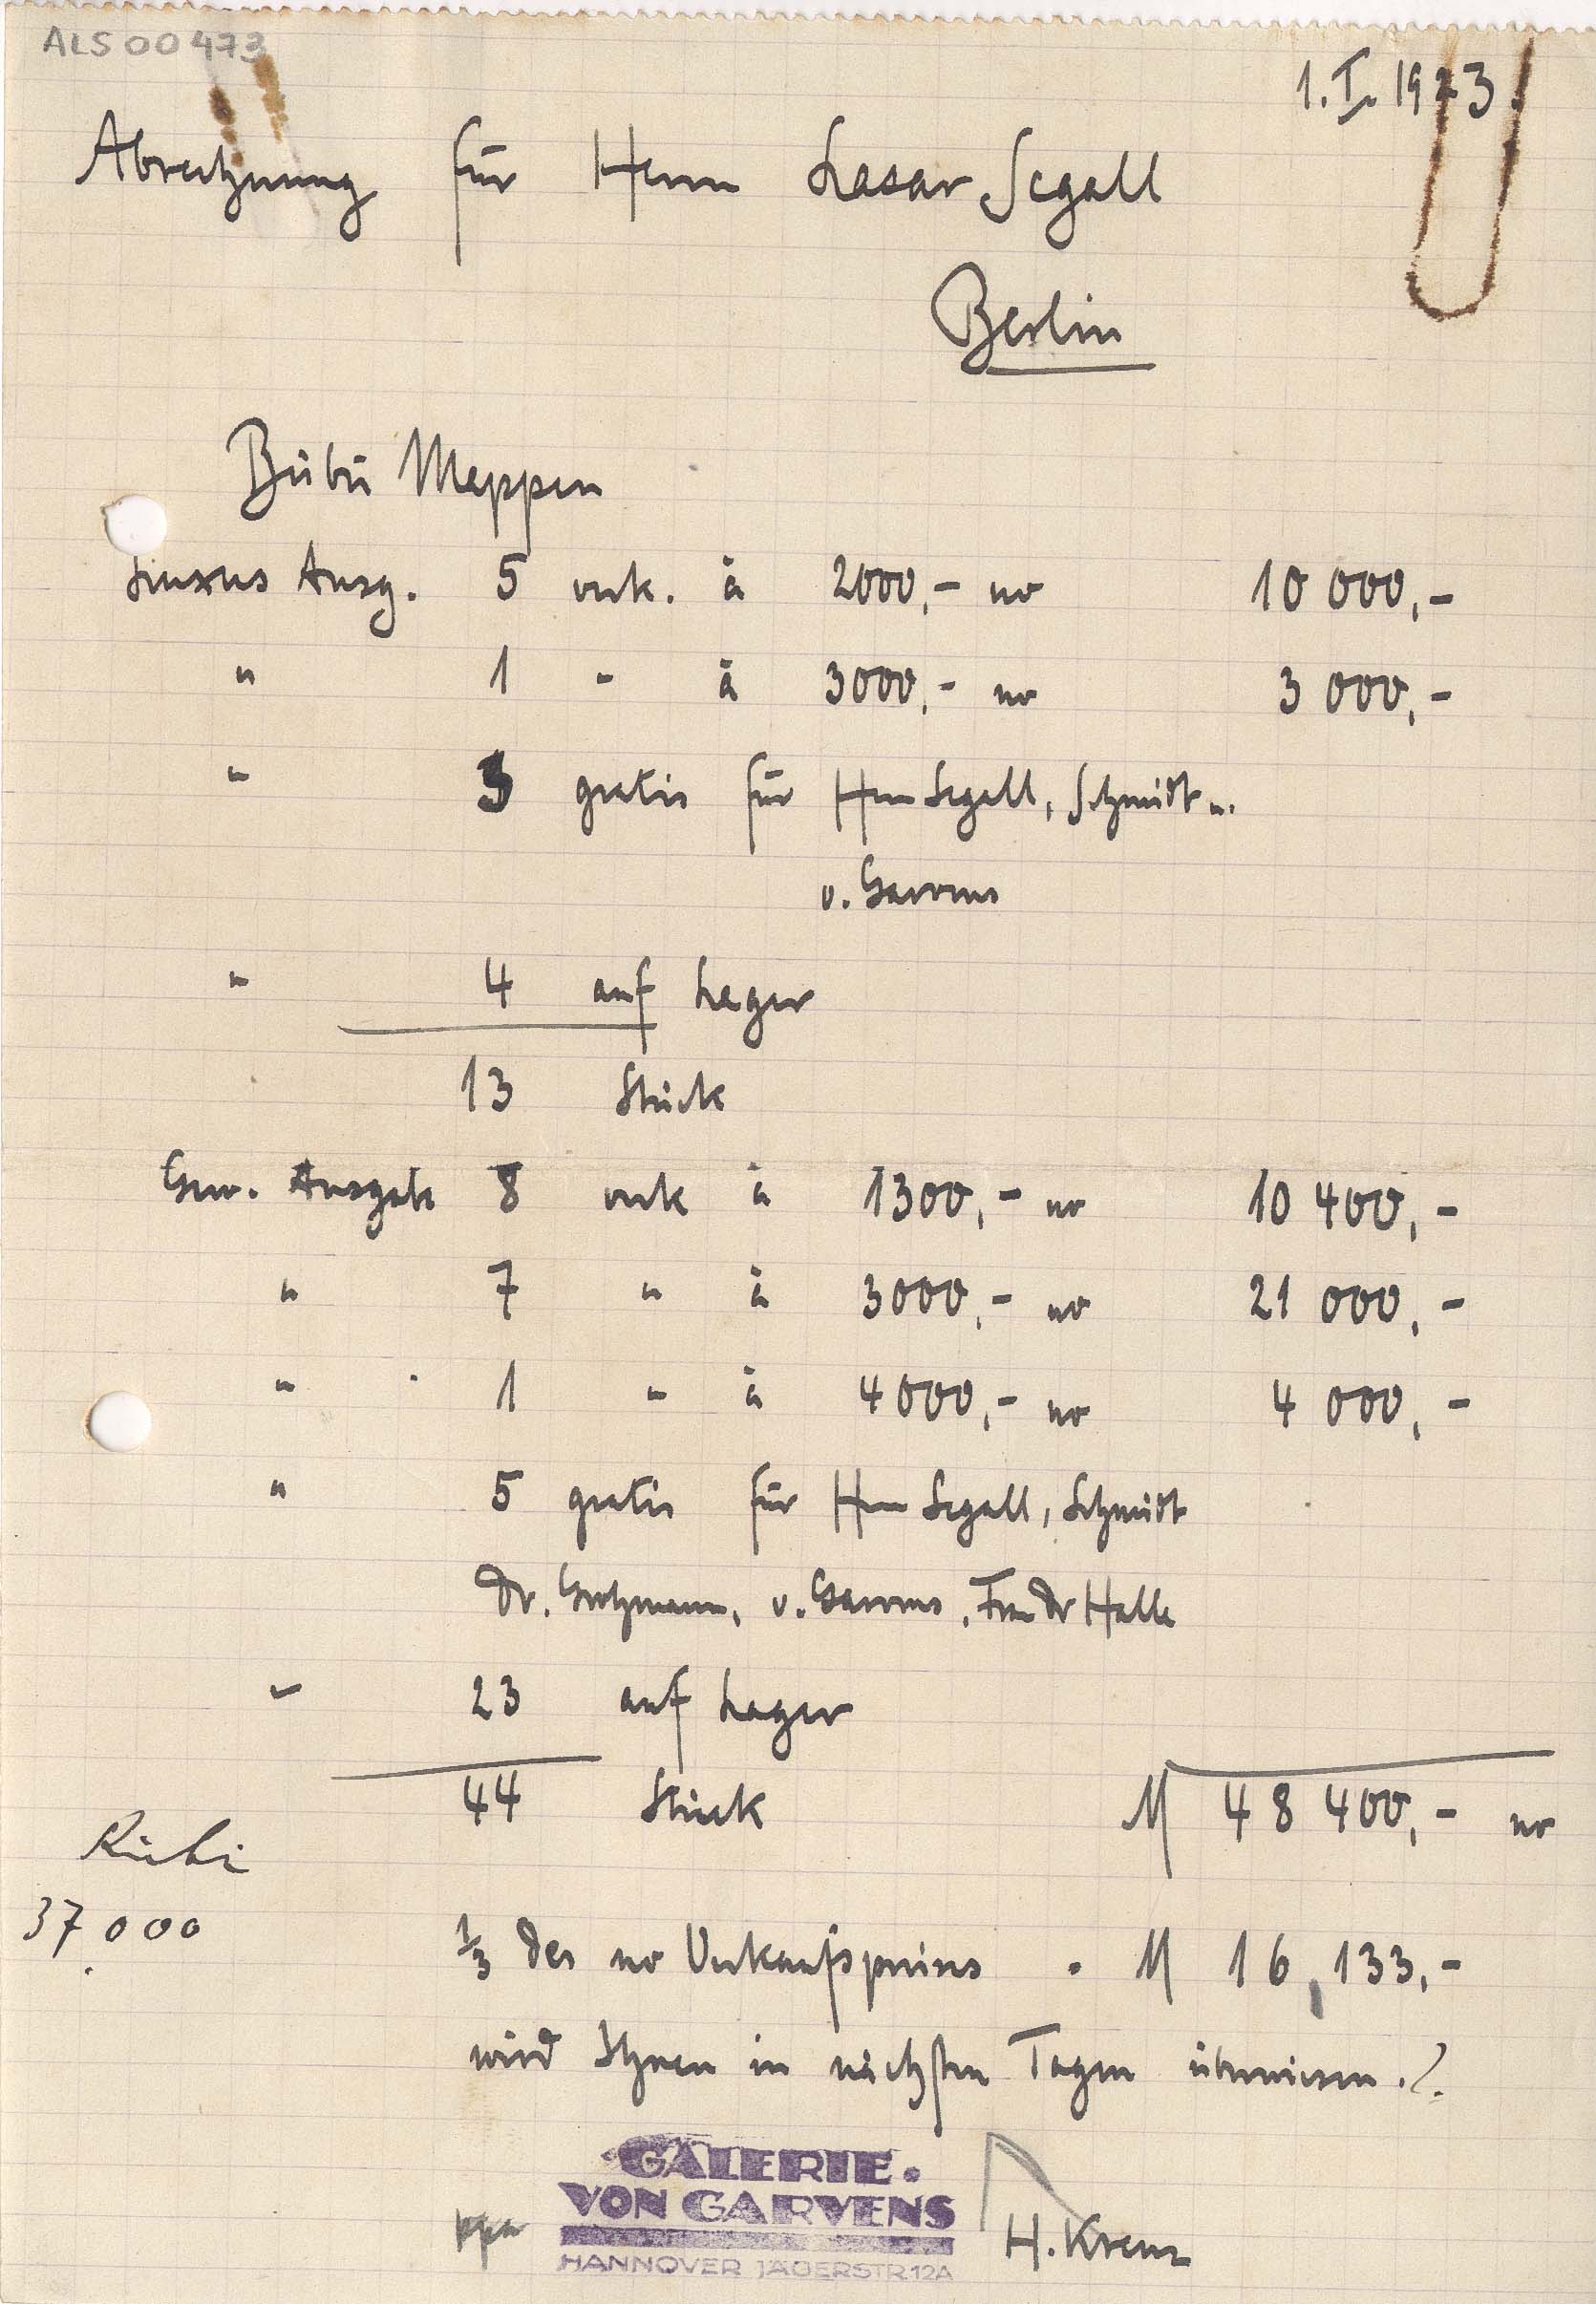 ALS 00473
1. I. 1923.
Abrechnung für Herrn Lasar Segall
Berlin
Bübü Mappen
Luxus Ausg. 5 verk. à 2000,- no 10 000,-
" 1 " à 3000,- no 3 000,-
" 3 gratis für Herrn Segall, Schmidt u.
v. Garvens
" 4 auf Lager
13 Stück
Gew. Ausgabe 8 verk à 1300,- no 10 400,-
" 7 " à 3000,- no 21 000,-
" 1 " à 4000,- no 4 000,-
" 5 gratis für Herrn Segall, Schmidt
Dr. Grohmann, v. Garvens, Frau Dr Halle
" 23 auf Lager
44 Stück M 48 400,- no
37.000
1/3 des no Verkaufspreises . M 16,133,-
wird Ihnen in nächsten Tagen überwiesen.
GALERIE.
VON GARVENS
HANNOVER JÄGERSTR. 12A
ppa H. Krenz